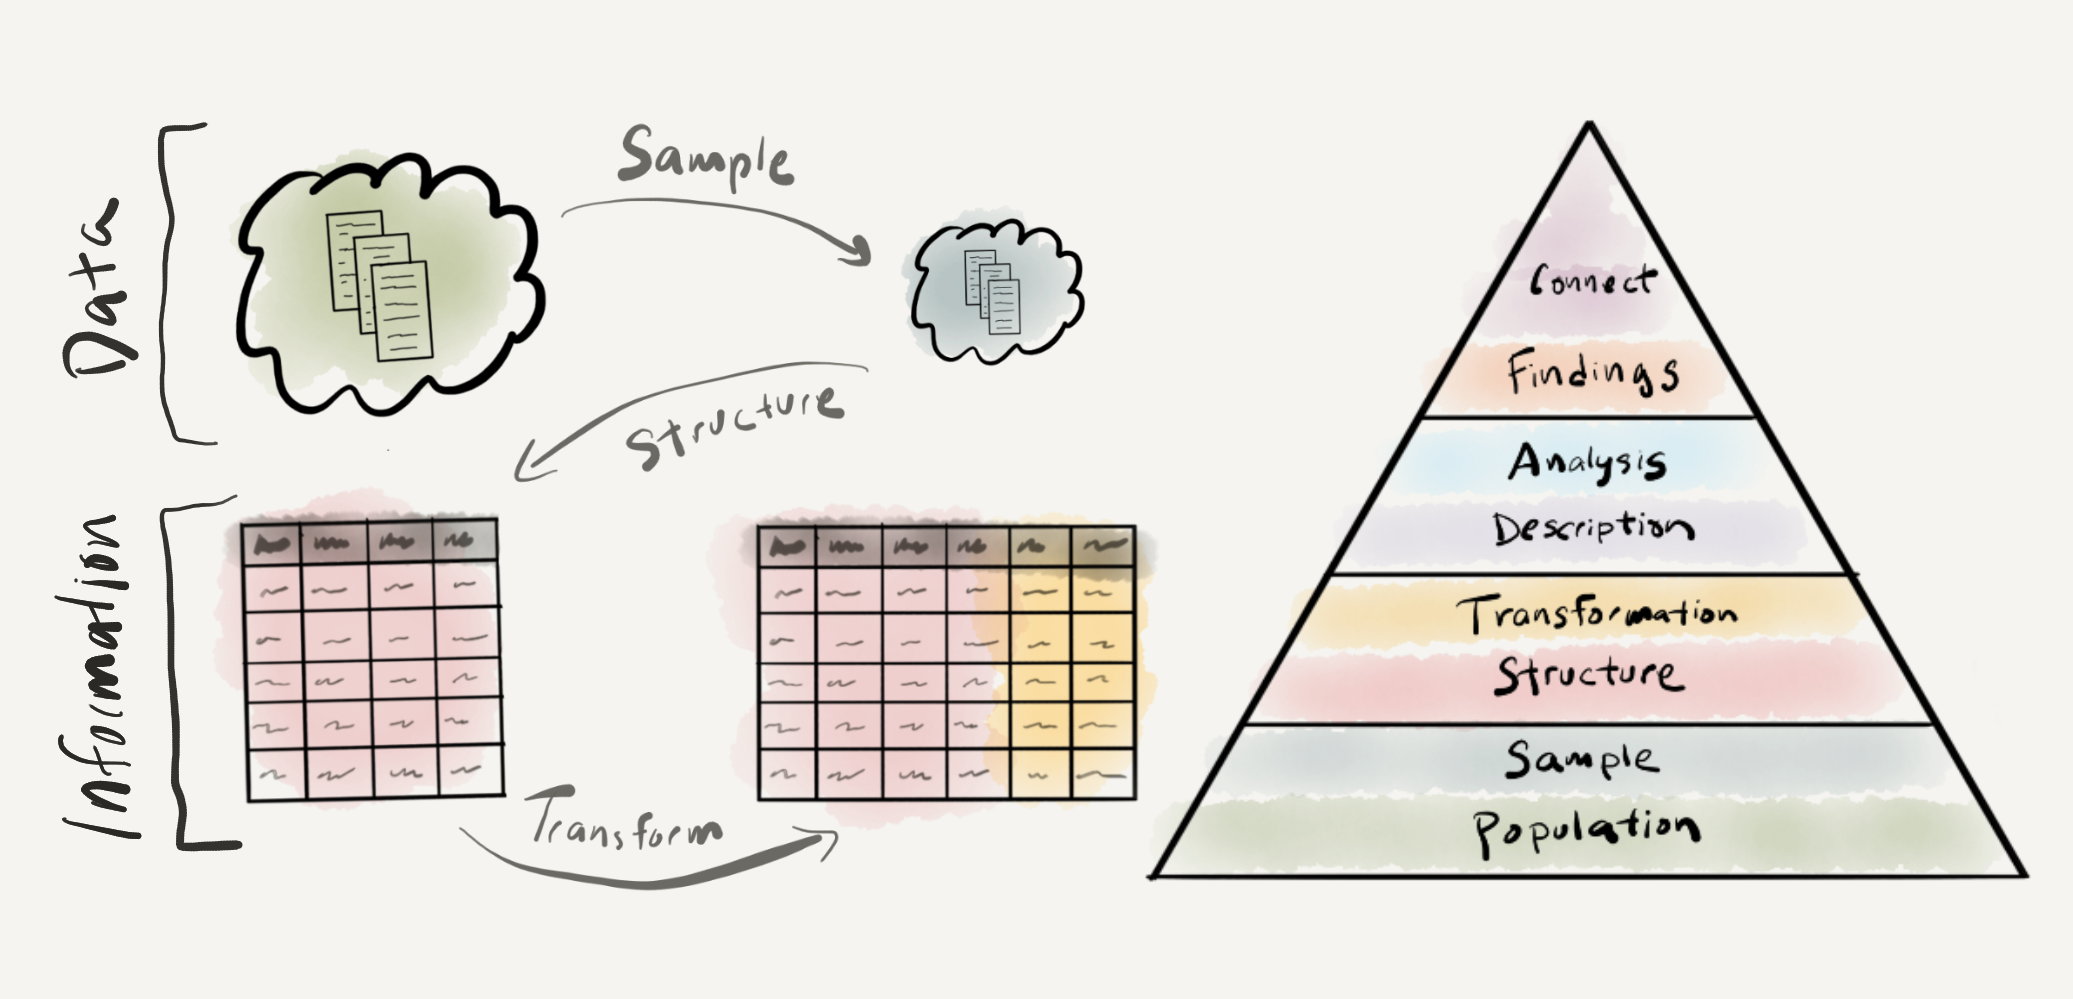 Data
Sample
Structure
Information
Transform
Connect
Findings
Analysis
Description
Transformation
Structure
Sample
Population